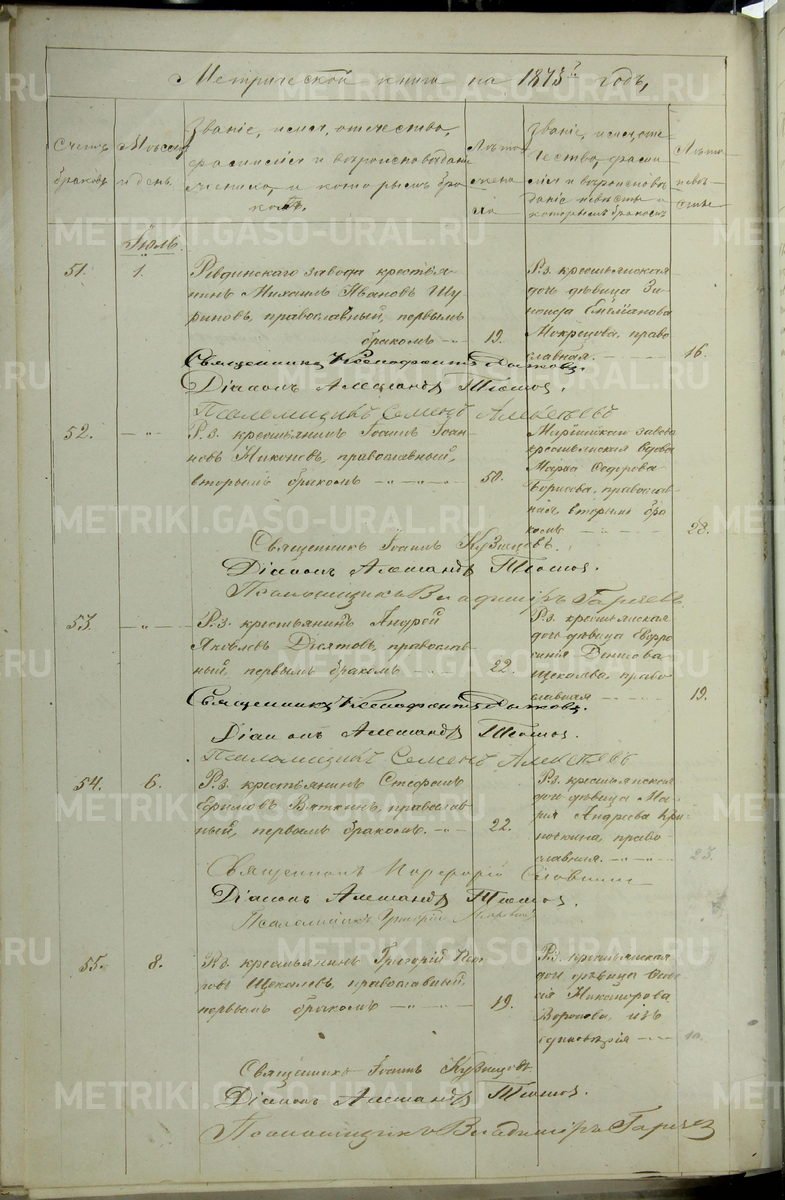 Метрической книги на 1873й годъ,
Счетъ браковъ.
Мѣсяцъ и день.
Званіе, имя, отчество,
фамилія и вѣроисповѣданіе
жениха, и которымъ бра-
комъ.
Лѣта
жени-
ха
Званіе, имя, оте-
чество, фами-
лія и вѣроисповѣ-
даніе невѣсты и
которымъ бракомъ
Лѣта
невѣ-
сты
Іюль.
51.
1.
Ревдинскаго завода крестья-
нинъ Михаилъ Ивановъ
православный, первымъ
бракомъ
19.
Р.з. крестьянская
дочь дѣвица Зи-
наида
Мокрецова, право-
славная.
16.
Священникъ Ксенофонтъ
Діаконъ Александръ
Псаломщикъ Семенъ Алексѣевъ
52.
Р.з. крестьянинъ Іоаннъ Іоан-
новъ Никоновъ, православный,
вторымъ бракомъ
50.
завода
крестьянская вдова
Марѳа Ѳедорова
Борисова, православ-
ная, вторымъ бра-
комъ
28.
Священникъ Іоаннъ Кузнецовъ.
Діаконъ Александръ
Псаломщикъ Владиміръ
53.
Р.з. крестьянинъ Андрей
Яковлевъ православ-
ный, первымъ бракомъ
22.
Р.з. крестьянская
дочь дѣвица Евфро-
синія Денисова
Щекалева, право-
славная
19.
Священникъ Ксенофонтъ
Діаконъ Александръ
Псаломщикъ Семенъ Алексѣевъ
54.
6.
Р.з. крестьянинъ Стефанъ
Ефимовъ Вяткинъ, православ-
ный, первымъ бракомъ.
22.
Р.з. крестьянская
дочь дѣвица Ма-
рія Андреева
право-
славная.
23.
Священникъ Порфирій
Діаконъ Александръ
Псаломщикъ Григорій
55.
8.
Р.з. крестьянинъ Григорій
Щекалевъ, православный,
первымъ бракомъ
19.
Р.з. крестьянская
дочь дѣвица
Никанорова
Воронова, изъ
единовѣрія
Священникъ Іоаннъ Кузнецовъ
Діаконъ Александръ
Псаломщикъ Владиміръ
METRIKI.GASO-URAL.RU